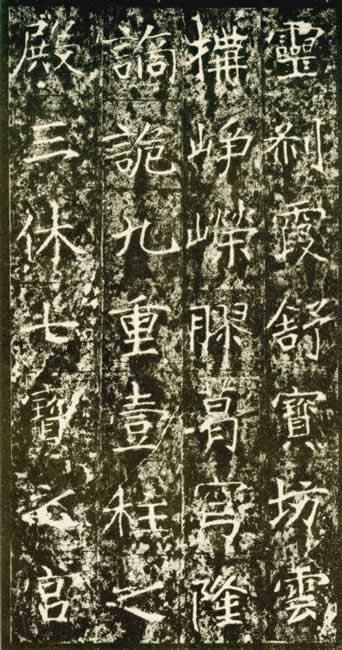 靈刹霞舒寶坊雲
搆崢嶸膠葛穹隆
譎詭九重壹柱之
殿三休七寶之宮